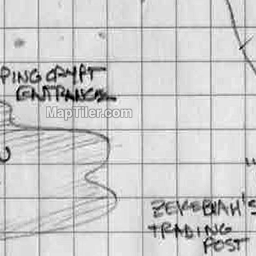 PING CRYPT
ENTRANCE
MapTiler.com
ZEKEBIAH'S
TRADING
POST